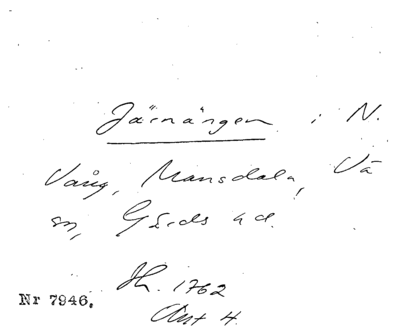 Järnängen i N.
Vång, Mansdala, Vä
sn, Gärds hd.
Jh. 1762
Akt 4.
Nr 7946.